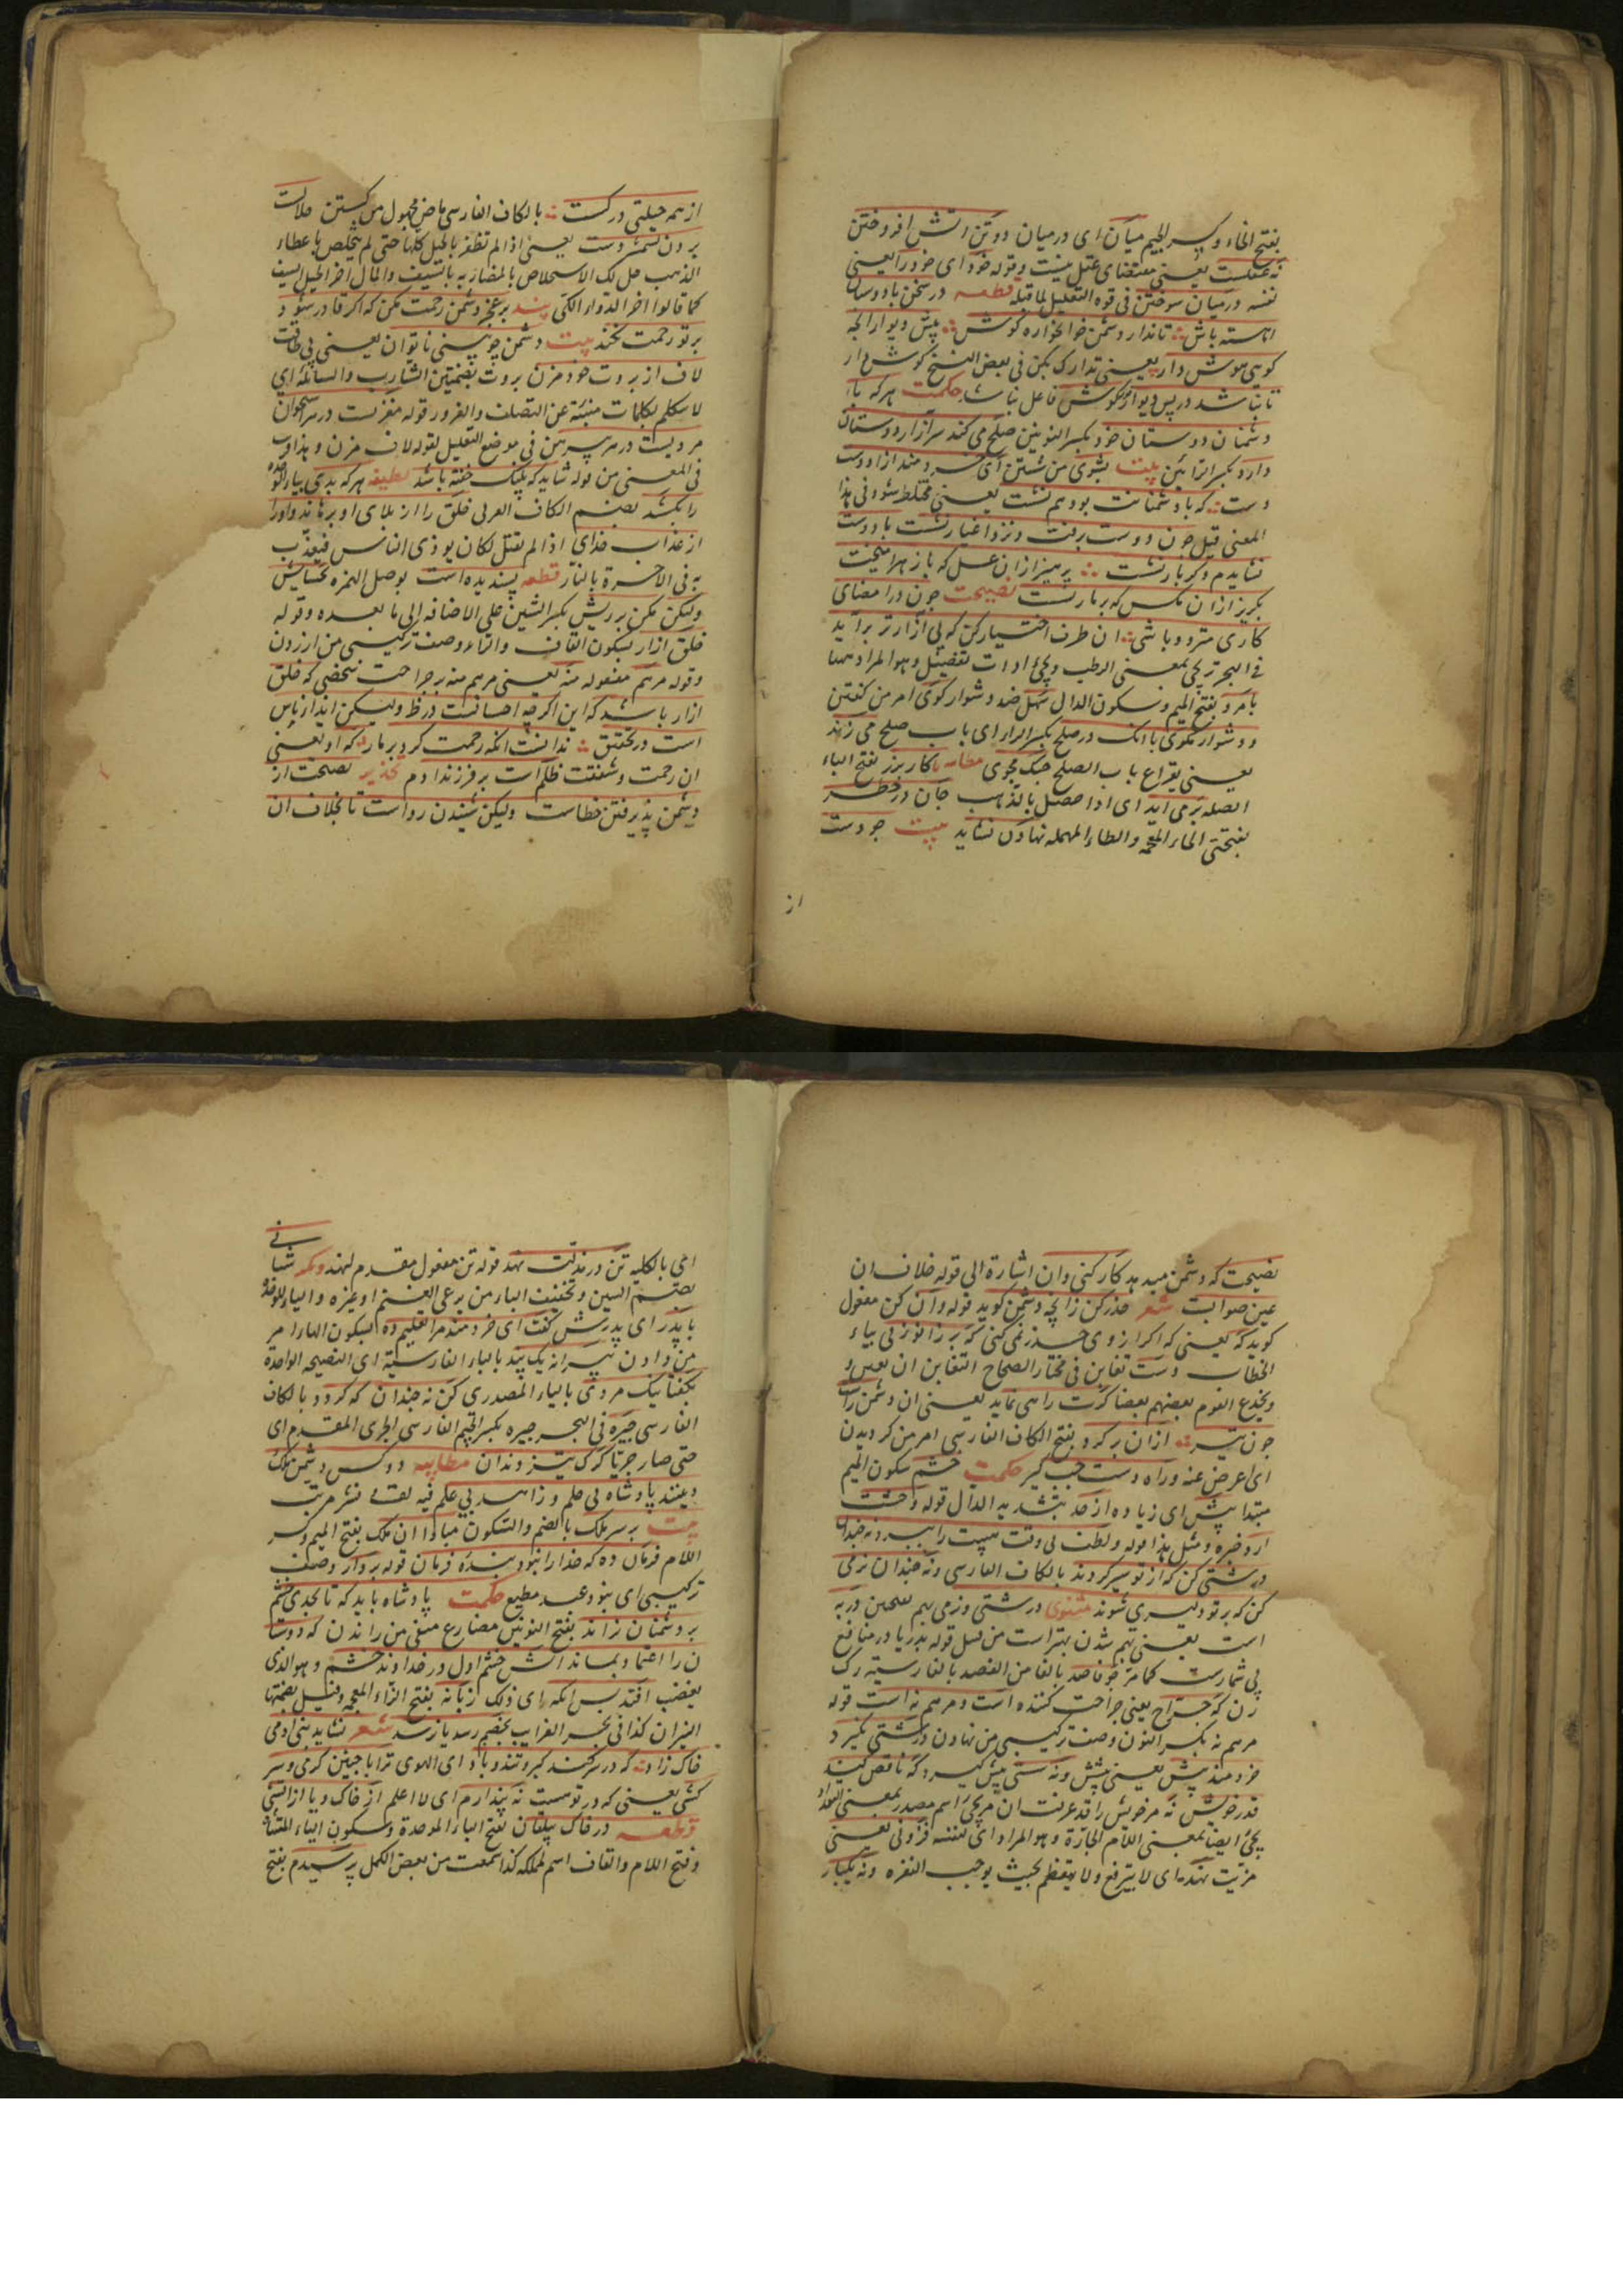 بفتح الخاء وكسر الجيم ميان اى درميان دو تن آتش افروختن
نه عقلست يعنى مقتضاى عقل نيست وقوله خود اى خود را يعنى
نفسه درميان سوختن فى قوة التعليل لما قبله قطعه در سخن با دوستان
اهسته باش تا ندارد دشمن خونخواره كوش پيش ديوار انچه
كويى هوش دار يعنى تدارك بكن فى بعض النسخ كوش دار
تا نباشد در پس ديوار كوش فاعل نباشد حكمت هركه با
دشمنان دوستان خود بكسر النونين صلح مى كند سر آزار دوستان
دارد بكسر الرائين بيت بشوى من شستن اى خردمند ازان دوست
دست كه با دشمنانت بود هم نشست يعنى مختلط شود فى هذا
المعنى قيل چون دوست برفت ونزد اغيار نشست با دوست
نشايدم دكر بار نشست پرهيز ازان عسل كه با زهر اميخت
بكريز ازان مكس كه بر مار نشست نصيحت چون در امضاى
كارى متردد باشى ان طرف اختيار كن كه بى آزارتر برآيد
بامرد بفتح الميم وسكون الدال سهل ضد دشوار كوى امر من كفتن
ودشوار مكوى بانك در صلح بكسر الراء اى باب صلح مى زند
يعنى يقراع باب الصلح جنك مجوى مطايبه تا كار بزر بفتح الباء
الصله برمى ايد اى اذا حصل بالذهب جان در خطر
بفتحتى الخاء المعجمه والطاء المهمله نهادن نشايد بيت چو دست
از
از همه حيلتى دركسست بالكاف الفارسى ماضى مجهول من كسستن حلالست
بردن بشمشير دست يعنى اذا لم تظفر بالحيل كلها حتى لم يتخلص باعطاء
الذهب حل لك الاستخلاص بالمضاربه بالسيف والمال اخر الحيل السيف
كما قالوا اخر الدواء الكى پند بر عجز دشمن رحمت مكن كه اكر قادر شود
بر تو رحمت نكند بيت دشمن چو بينى ناتوان يعنى بى طاقت
لاف از بروت خود مزن بروت بضمتين الشارب والسبلة اى
لا تتكلم بكلمات منبئة عن التصلف والغرور قوله مغزيست در هر استخوان
مرديست در هر پيرهن فى موضع التعليل لقوله لاف مزن وهذا قريب
فى المعنى من قوله شايد كه پلنك خفته باشد لطيفه هركه بدى بياء الوحدة
را بكشد بضم الكاف العربى خلق را از بلاى او برهاند واورا
از عذاب خداى اذا لم يقتل لكان يوذى الناس فيعذب
به فى الاخرة بالنار قطعه پسنديده است بوصل الهمزه بخشايش
وليكن مكن بر ريش بكسر الشين على الاضافه الى ما بعده وقوله
خلق ازار بسكون القاف والتاء وصف تركيبى من ازردن
وقوله مرهم مفعوله منه يعنى مرهم منه بر جراحت شخصى كه خلق
ازار باشد كه اين اكرچه احسانست در ظ وليكن ايذاء ناس
است در تحقيق ندانست انكه رحمت كرد بر مار كه او يعنى
ان رحمت وشفقت ظلم است بر فرزند ادم تحذير نصيحت از
دشمن پذيرفتن خطاست وليكن شنيدن رواست تا بخلاف ان
نصيحت كه دشمن ميدهد كار كنى وان اشارة الى قوله خلاف ان
عين صوابست شعر حذر كن زانچه دشمن كويد قوله وآن كن مفعول
كويد كه يعنى كه اكر ازوى حذر نمى كنى كه بر زانو زنى بياء
الخطاب دست تغابن فى مختار الصحاح التغابن ان يغبن و
يخدع القوم بعضهم بعضا كرت راهى نمايد يعنى ان دشمن راست
چون تير ازان بركرد بفتح الكاف الفارسى امر من كرديدن
اى اعرض عنه وراه دست چپ كير حكمت خشم بسكون الميم
مبتدا بيش اى زياده از حد بتشديد الدال قوله وحشت
آرد خبره ومثل هذا قوله ولطف بى وقت هيبت را ببرد نه چندان
درشتى كن كه از تو سير كردند بالكاف الفارسى ونه چندان نرمى
كن كه بر تو دليرى شوند مثنوى درشتى ونرمى بهم بمعنى در به
است يعنى بهم شدن بهتر است من قبيل قوله بدريا در منافع
بى شمارست كما مر چو فاصد بالفا من الفصد بالفارسيه رك
زن كه جراح يعنى جراحت كننده است ومرهم نه است قوله
مرهم نه بكسر النون وصف تركيبى من نهادن درشتى نكيرد
خردمند پيش يعنى پيش ونه سستى پيش كيرد كه ناقص كند
قدر خويش نه مر خويش را قد عرفت ان مر يجئ اسم مصدر بمعنى التعداد
يجئ ايضا بمعنى اللام الجارة وهو المراد اى لنفسه فزونى يعنى
مزيت نهند اى لا يترفع ولا يتعظم بحيث يوجب النفره ونه يكبار
اى بالكليه تن در مذلت نهد قوله تن مفعول مقدم لنهد وكر شبانى
بضم السين وتخفيف الباء من يرعى الغنم او غيره والياء للوحدة
با پدر اى پدرش كفت اى خردمند مرا تعليم ده بسكون الهاء امر
من دادن پيرانه يك پند بالباء الفارسية اى النصيحة الواحدة
بكفتا نيك مردى بالياء المصدرى كن نه چندان كه كردد بالكاف
الفارسى چيره فى البحر چيره بكسر الجيم الفارسى الجرى المقدم اى
حتى صار جريا كرك تيز دندان مطايبه دو كس دشمن ملك
ودينند پادشاه بى حلم وزاهد بى علم فيه لف ونشر مرتب
بيت بر سر ملك بالضم والسكون مبادا ان ملك بفتح الميم وكسر
اللام فرمان ده كه خدا را نبود بنده فرمان قوله بردار وصف
تركيبى اى بنود عبد مطيع حكمت پادشاه بايد كه تا بحدى خشم
بر دشمنان نراند بفتح النونين مضارع منفى من راندن كه دوستا
ن را اعتماد بماند اتش خشم اول در خداوند خشم وهو الذى
يغضب افتد پس انكه اى ذلك زبانه بفتح الزاء المعجمه وقيل بضمتها
النيران كذا فى بحر الغرايب بخصم رسد يا نرسد شعر نشايد بنى ادمى
خاك زاد كه در سر كند كبر وتندى وباد اى الهوى ترا با چنين كرمى وسر
كشى يعنى كه در تو هست نه پندارم اى لا اعلم از خاك ويا از اتشى
قطعه در خاك بيلقان بفتح الباء الموحدة وسكون الياء المثناة
وفتح اللام والقاف اسم لمملكه كذا سمعت من بعض الكمل پرسيدم بفتح